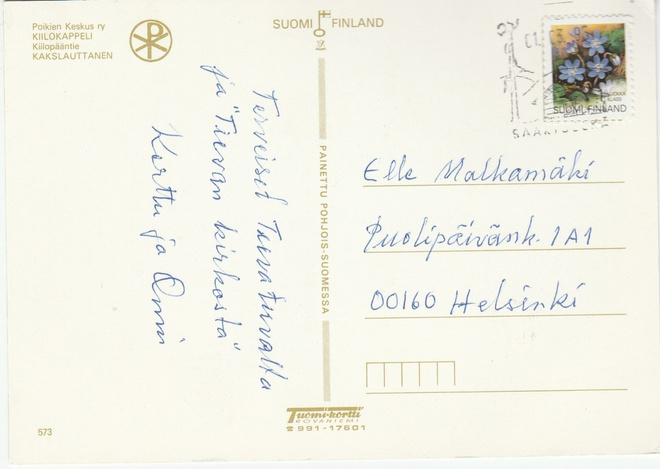 Poikien Keskus ry
KIILOKAPPELI
Kiilopääntie
KAKSLAUTTANEN
SUOMI FINLAND
01
LUOKKA
KLASS
SUOMI FINLAND
Terveiset Tievatuvalta
ja "Tievan kirkosta"
Kerttu ja Onni
PAINETTU POHJOIS-SUOMESSA
Elle Malkamäki
Puolipäivänk. 1A1
00160 Helsinki
Tuomi-kortti
ROVANIEMI
☎ 991-17601
573